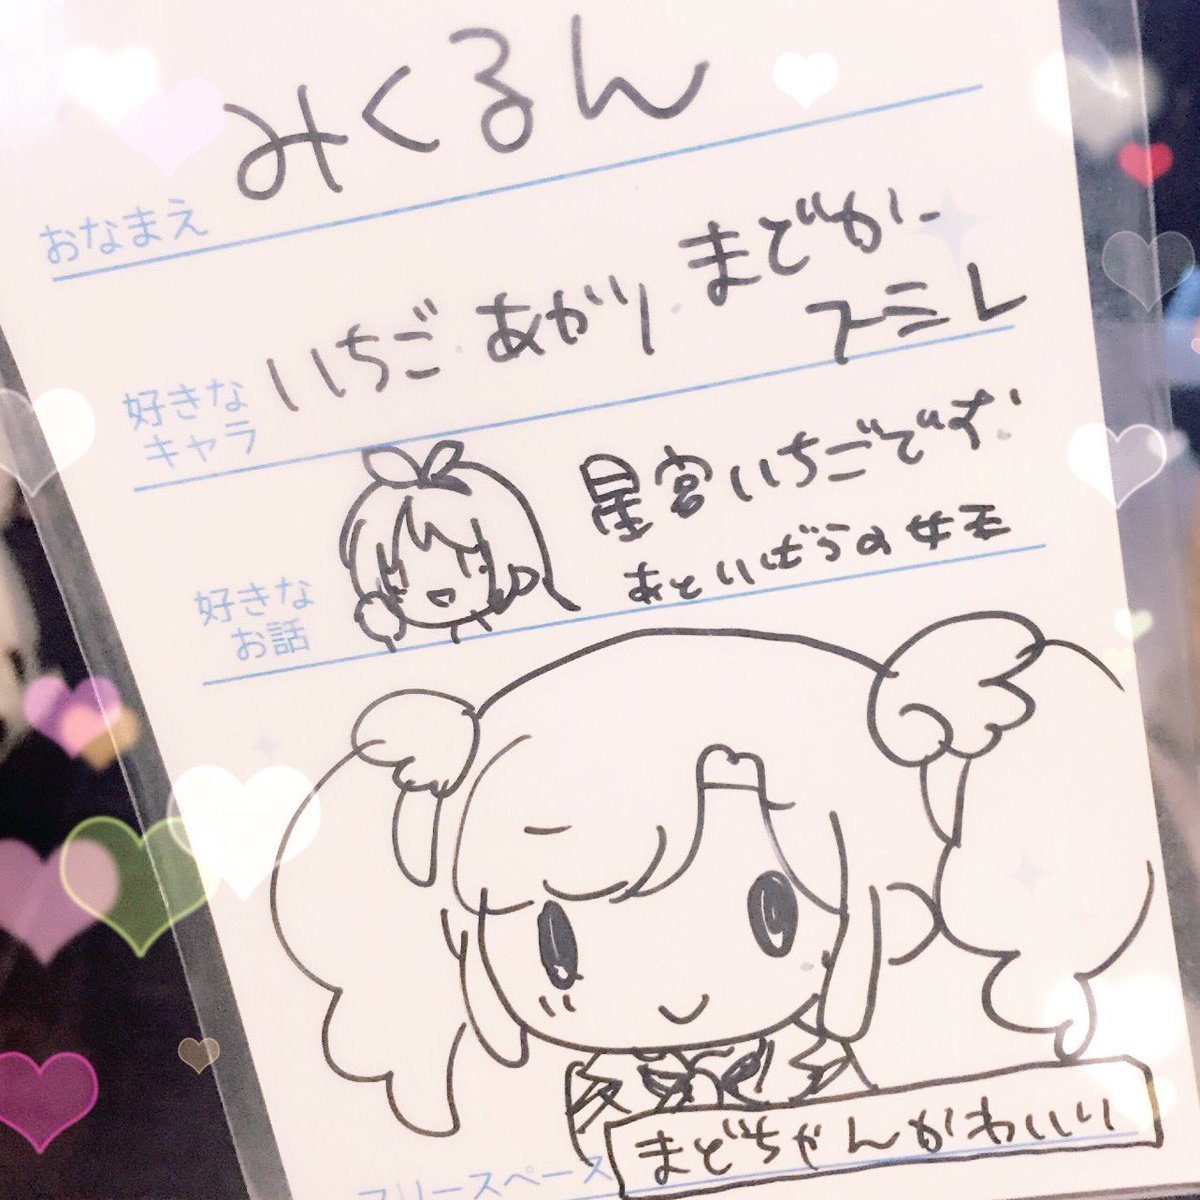 みくるん
おなまえ
いちご あかり まどか
スミレ
好きな
キャラ
星宮いちごでず
あといばらの女王
好きな
お話
まどちゃんかわいい
フリースペース